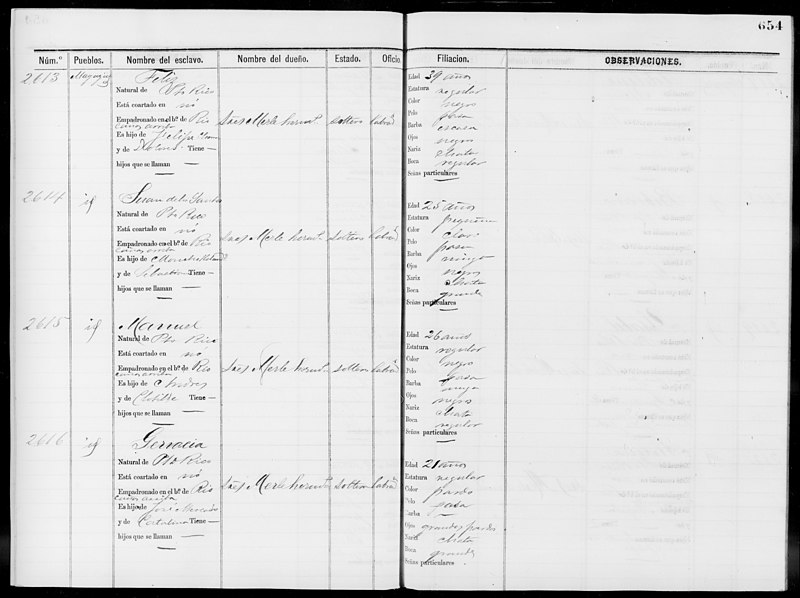 654
Núm.º Pueblos. Nombre del esclavo. Nombre del dueño. Estado. Oficio. Filiacion. OBSERVACIONES.
2613 Felis
Natural de Pto Rico
Está coartado en nó
Empadronado en el bº de Rio
cañas arriba
Es hijo de Felipe
y de Tiene —
hijos que se llaman —
Sres Merle herms. soltero labrad
Edad 39 años
Estatura regular
Color negro
Pelo pasa
Barba escasa
Ojos negros
Nariz chata
Boca regular
Señas particulares —
2614 id Juan de los Santos
Natural de Pto Rico
Está coartado en nó
Empadronado en el bº de Rio
cañas arriba
Es hijo de
y de Sebastiana Tiene —
hijos que se llaman —
Sres Merle herms. soltero labrad
Edad 25 años
Estatura pequeña
Color claro
Pelo pasa
Barba ninga
Ojos negros
Nariz chata
Boca grande
Señas particulares —
2615 id Manuel
Natural de Pto Rico
Está coartado en nó
Empadronado en el bº de Rio
cañas arriba
Es hijo de Andres
y de Clotilde Tiene —
hijos que se llaman —
Sres Merle herms. soltero labrad
Edad 26 años
Estatura regular
Color negro
Pelo pasa
Barba
Ojos negros
Nariz chata
Boca regular
Señas particulares —
2616 id
Natural de Pto Rico
Está coartado en nó
Empadronado en el bº de Rio
cañas arriba
Es hijo de José Mercado
y de Catalina Tiene —
hijos que se llaman —
Sres Merle herms. soltera labrad
Edad 21 años
Estatura regular
Color pardo
Pelo pasa
Barba —
Ojos grandes pardos
Nariz chata
Boca grande
Señas particulares